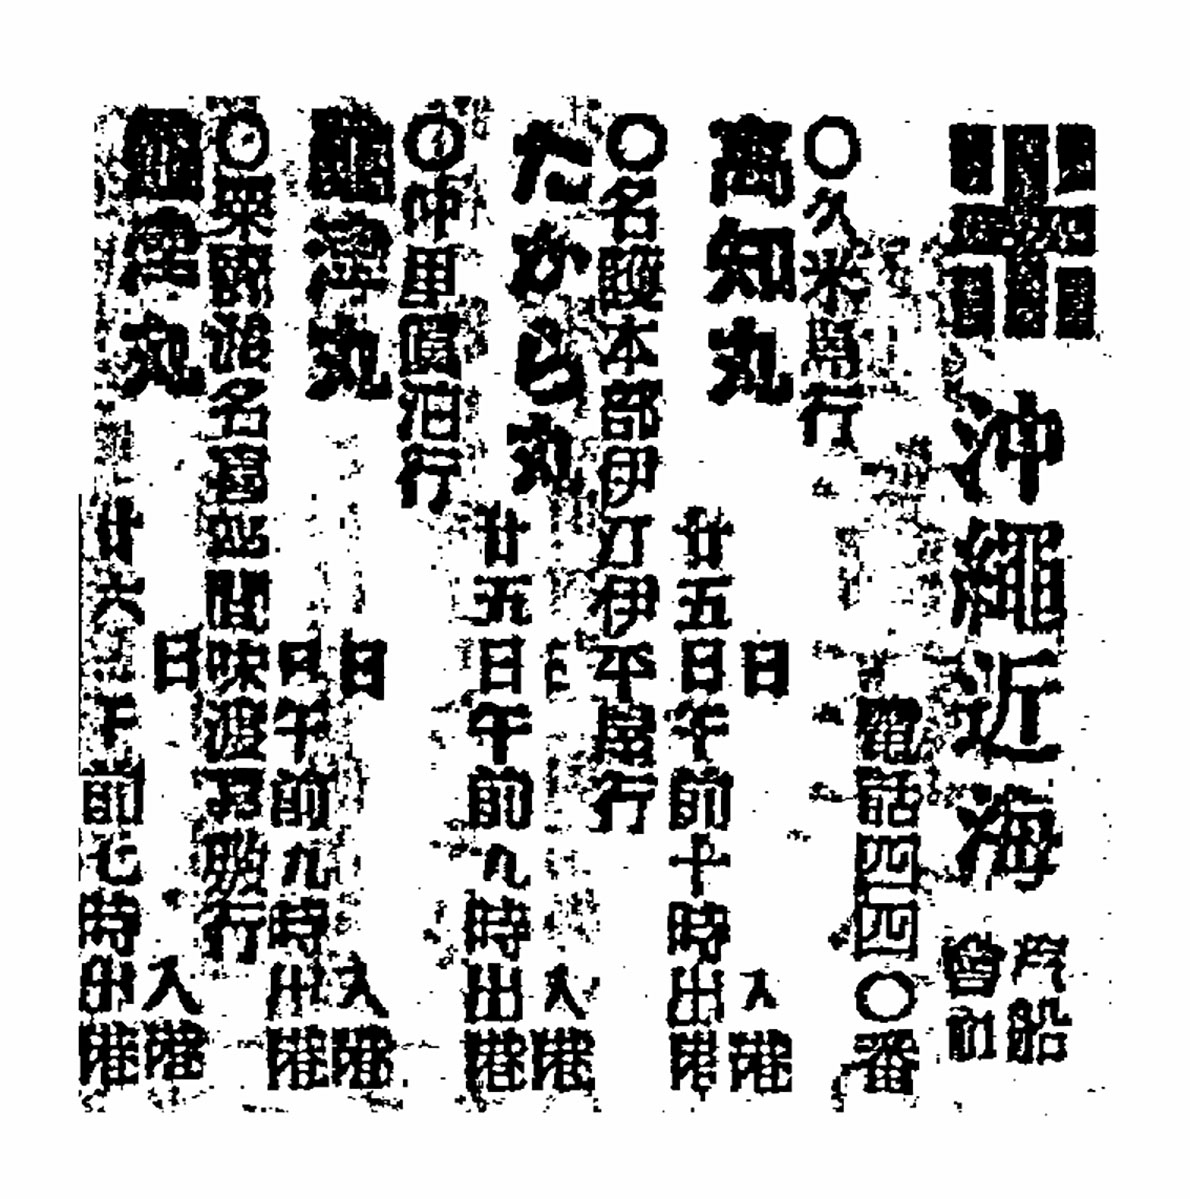 沖繩近海汽船會社
電話四四〇番
〇久米島行
高知丸 日入港
廿五日午前十時出港
〇名護本部伊江伊平屋行
たから丸 日入港
廿五日午前九時出港
〇仲里眞泊行
龜津丸 日入港
日午前九時出港
〇粟國渡名喜座間味渡嘉敷行
龜津丸 日入港
廿六日午前七時出港